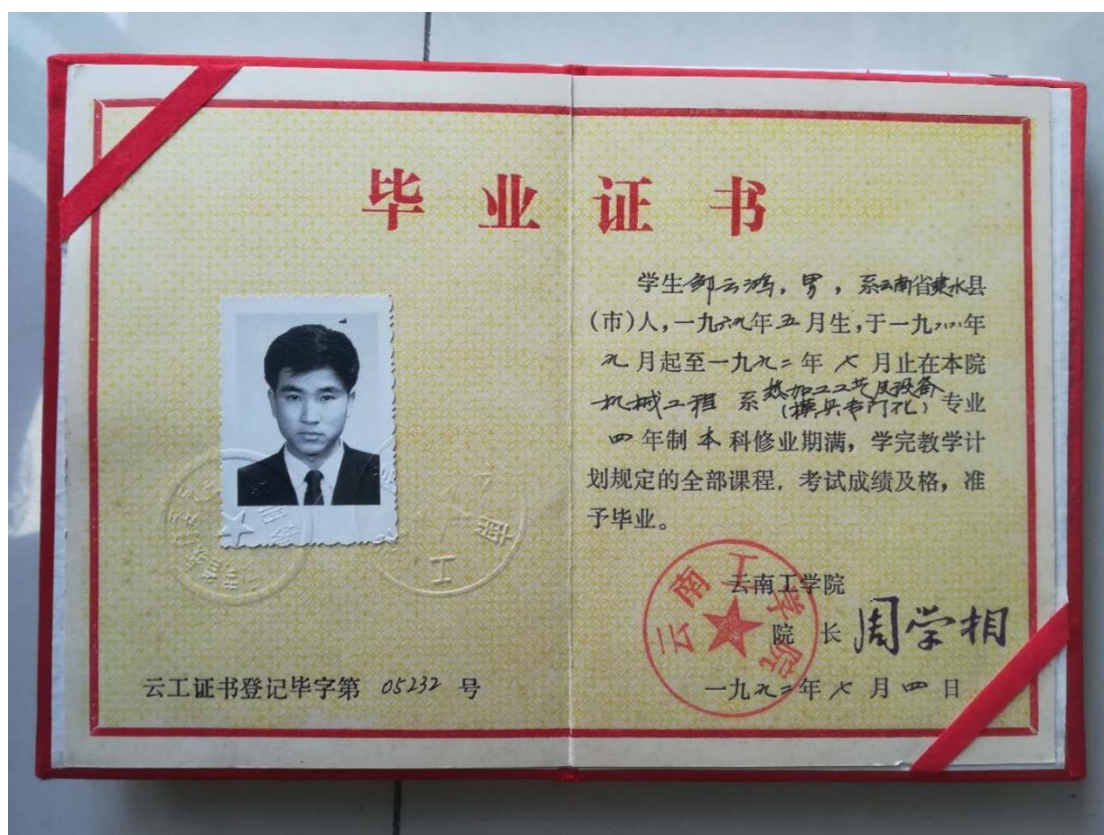 毕业证书
学生邹云鸿，男，系云南省建水县
(市)人，一九六九年五月生，于一九八八年
九月起至一九九二年七月止在本院
机械工程系热加工工艺及设备
(模具专门化)专业
四年制本科修业期满，学完教学计
划规定的全部课程，考试成绩及格，准
予毕业。
云南工学院
云南工学院
院长周学相
云工证书登记毕字第05232号
一九九二年七月四日